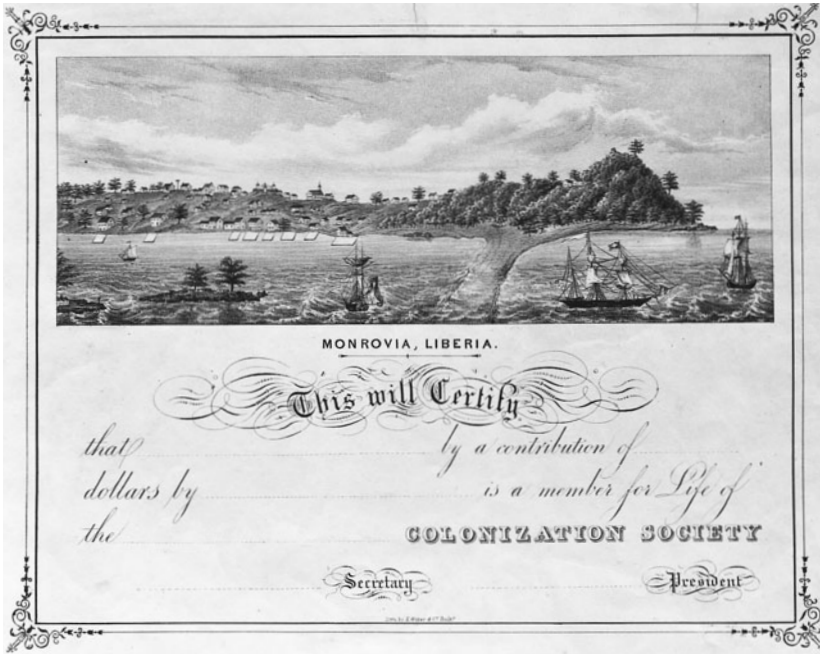 MONROVIA, LIBERIA.
This will Certify
that by a contribution of
dollars by is a member for Life of
the COLONIZATION SOCIETY
Secretary President